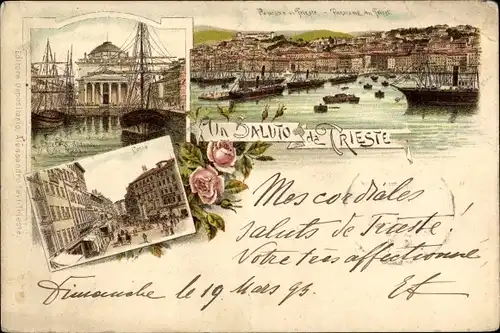 Panorama di Trieste - Panorama von Triest
Un Saluto da Trieste
Corso
Mes cordiales
saluts de Trieste!
Votre très affectionné
Dimanche le 19 Mars 93.